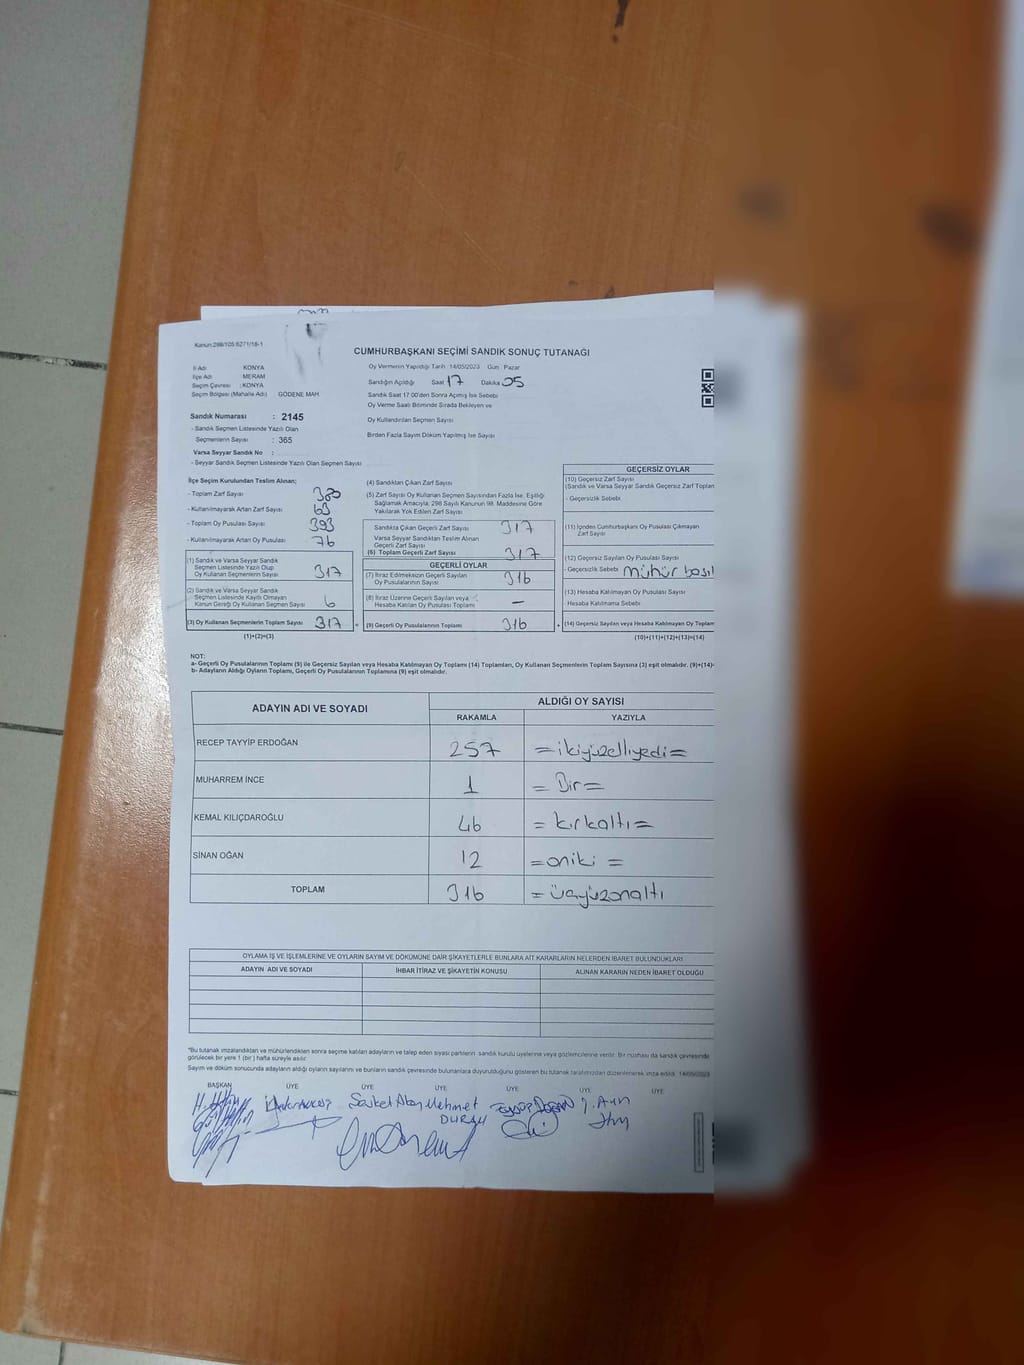 Kanun:298/105;6271/18-1
CUMHURBAŞKANI SEÇİMİ SANDIK SONUÇ TUTANAĞI
İl Adı KONYA
İlçe Adı MERAM
Seçim Çevresi : KONYA
Seçim Bölgesi (Mahalle Adı) GÖDENE MAH.
Sandık Numarası : 2145
- Sandık Seçmen Listesinde Yazılı Olan
Seçmenlerin Sayısı : 365
Varsa Seyyar Sandık No :
- Seyyar Sandık Seçmen Listesinde Yazılı Olan Seçmen Sayısı
Oy Vermenin Yapıldığı Tarih : 14/05/2023 Gün : Pazar
Sandığın Açıldığı Saat 17 Dakika 05
Sandık Saat 17:00'den Sonra Açılmış İse Sebebi
Oy Verme Saati Bitiminde Sırada Bekleyen ve
Oy Kullandırılan Seçmen Sayısı
Birden Fazla Sayım Döküm Yapılmış İse Sayısı
İlçe Seçim Kurulundan Teslim Alınan;
- Toplam Zarf Sayısı 380
- Kullanılmayarak Artan Zarf Sayısı 63
- Toplam Oy Pusulası Sayısı 393
- Kullanılmayarak Artan Oy Pusulası 76
(1) Sandık ve Varsa Seyyar Sandık
Seçmen Listesinde Yazılı Olup
Oy Kullanan Seçmenlerin Sayısı 317
(2) Sandık ve Varsa Seyyar Sandık
Seçmen Listesinde Kayıtlı Olmayan
Kanun Gereği Oy Kullanan Seçmen Sayısı 6
(3) Oy Kullanan Seçmenlerin Toplam Sayısı 317 =
(1)+(2)=(3)
(4) Sandıktan Çıkan Zarf Sayısı
(5) Zarf Sayısı Oy Kullanan Seçmen Sayısından Fazla İse, Eşitliği
Sağlamak Amacıyla; 298 Sayılı Kanunun 98. Maddesine Göre
Yakılarak Yok Edilen Zarf Sayısı
Sandıkta Çıkan Geçerli Zarf Sayısı 317
Varsa Seyyar Sandıktan Teslim Alınan
Geçerli Zarf Sayısı
(6) Toplam Geçerli Zarf Sayısı 317
GEÇERLİ OYLAR
(7) İtiraz Edilmeksizin Geçerli Sayılan
Oy Pusulalarının Sayısı 316
(8) İtiraz Üzerine Geçerli Sayılan veya
Hesaba Katılan Oy Pusulası Toplamı —
(9) Geçerli Oy Pusulalarının Toplamı 316 +
GEÇERSİZ OYLAR
(10) Geçersiz Zarf Sayısı
(Sandık ve Varsa Seyyar Sandık Geçersiz Zarf Toplam
- Geçersizlik Sebebi
(11) İçinden Cumhurbaşkanı Oy Pusulası Çıkmayan
Zarf Sayısı
(12) Geçersiz Sayılan Oy Pusulası Sayısı
- Geçersizlik Sebebi mühür basıl
(13) Hesaba Katılmayan Oy Pusulası Sayısı
Hesaba Katılmama Sebebi
(14) Geçersiz Sayılan veya Hesaba Katılmayan Oy Toplam
(10)+(11)+(12)+(13)=(14)
NOT:
a- Geçerli Oy Pusulalarının Toplamı (9) ile Geçersiz Sayılan veya Hesaba Katılmayan Oy Toplamı (14) Toplamları, Oy Kullanan Seçmenlerin Toplam Sayısına (3) eşit olmalıdır. (9)+(14)=
b- Adayların Aldığı Oyların Toplamı, Geçerli Oy Pusulalarının Toplamına (9) eşit olmalıdır.
ADAYIN ADI VE SOYADI ALDIĞI OY SAYISI
RAKAMLA YAZIYLA
RECEP TAYYİP ERDOĞAN 257 = ikiyüzelliyedi =
MUHARREM İNCE 1 = Bir =
KEMAL KILIÇDAROĞLU 46 = kırkaltı =
SİNAN OĞAN 12 = oniki =
TOPLAM 316 = üçyüzonaltı
OYLAMA İŞ VE İŞLEMLERİNE VE OYLARIN SAYIM VE DÖKÜMÜNE DAİR ŞİKAYETLERLE BUNLARA AİT KARARLARIN NELERDEN İBARET BULUNDUKLARI
ADAYIN ADI VE SOYADI İHBAR İTİRAZ VE ŞİKAYETİN KONUSU ALINAN KARARIN NEDEN İBARET OLDUĞU
*Bu tutanak imzalandıktan ve mühürlendikten sonra seçime katılan adayların ve talep eden siyasi partilerin sandık kurulu üyelerine veya gözlemcilerine verilir. Bir nüshası da sandık çevresinde
görülecek bir yere 1 (bir) hafta süreyle asılır.
Sayım ve döküm sonucunda adayların aldığı oyların sayılarını ve bunların sandık çevresinde bulunanlara duyurulduğunu gösteren bu tutanak tarafımızdan düzenlenerek imza edildi. 14/05/2023
BAŞKAN ÜYE ÜYE ÜYE ÜYE ÜYE ÜYE
Mehmet
DURAN